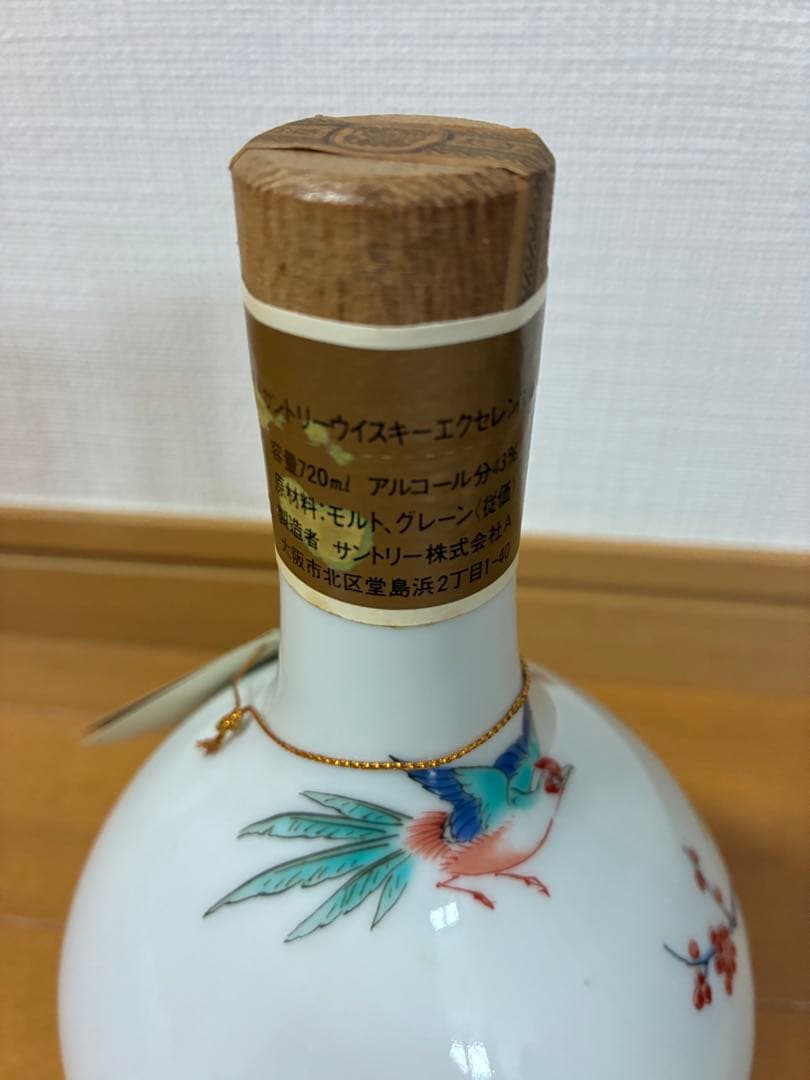 サントリーウイスキーエクセレンス
容量720ml アルコール分43%
原材料:モルト、グレーン(従価)
製造者 サントリー株式会社A
大阪市北区堂島浜2丁目1-40